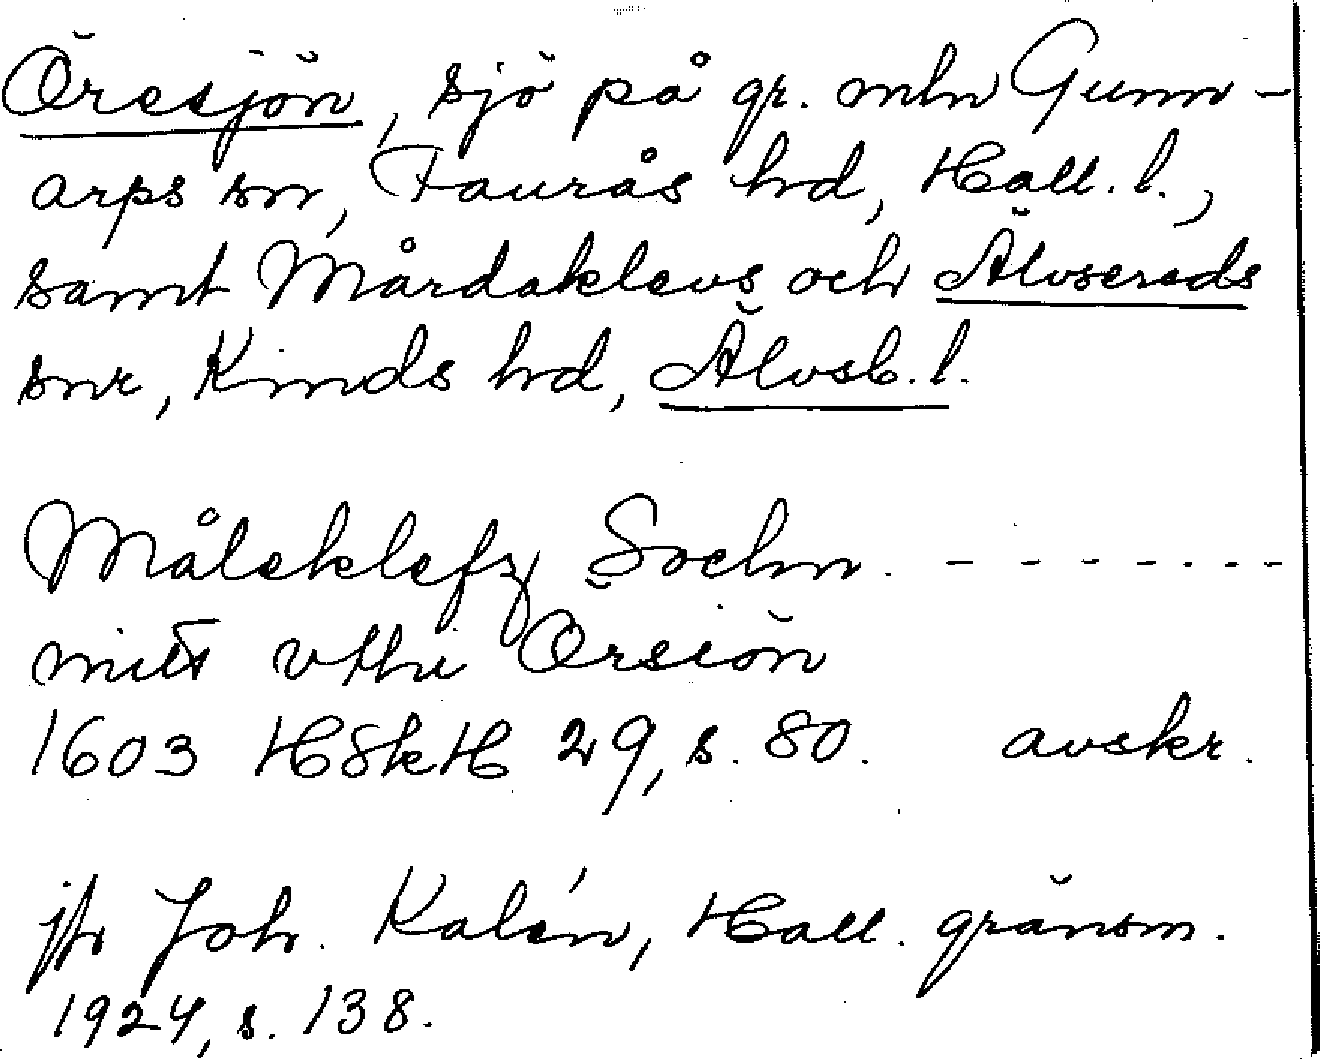 Öresjön, sjö på gr. mln Gunn-
arps sn, Faurås hd, Hall. l.,
samt Mårdaklevs och Älvsereds
snr, Kinds hd, Älvsb. l.
Måleklefz Sochn. - - - - - - -
mitt vthi Örsiön
1603 HSkH 29, s. 80. avskr.
jfr Joh. Kalén, Hall. gränsm.
1924, s. 138.